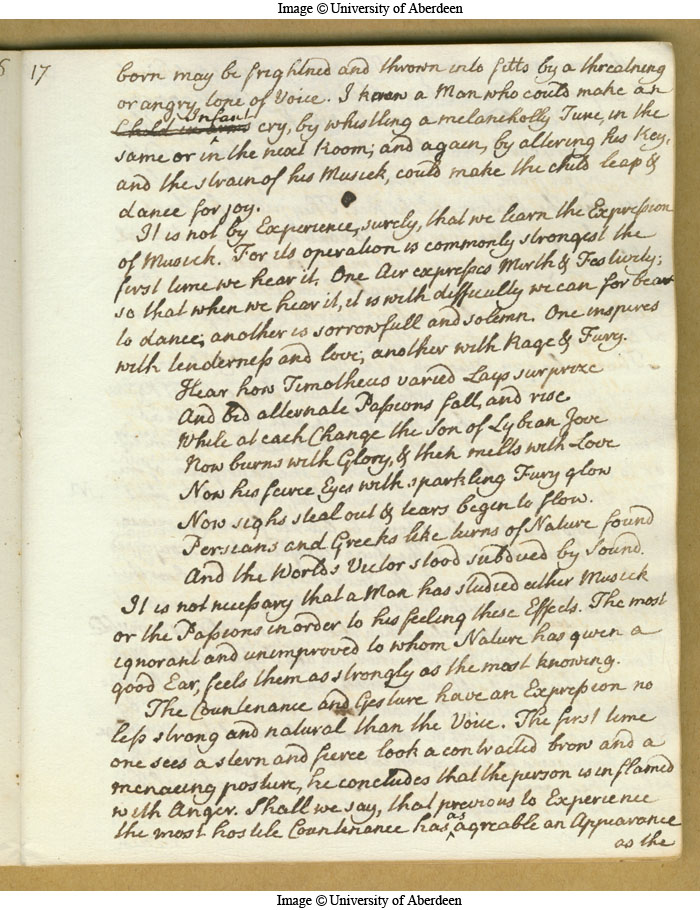 Image © University of Aberdeen
17
born may be frightned and thrown into fitts by a threatning
or angry tone of Voice. I knew a Man who could make an
Infant
Child in arms cry, by whistling a melancholly Tune, in the
same or in the next Room; and again, by altering his Key,
and the strain of his Musick, could make the child leap &
dance for joy.
It is not by Experience, surely, that we learn the Expression
of Musick. For its operation is commonly strongest the
first time we hear it. One Air expresses Mirth & Festivity;
so that when we hear it, it is with difficulty we can forbear
to dance; another is sorrowfull and solemn. One inspires
with tenderness and love; another with Rage & Fury.
Hear how Timotheus varied Lays surprize
And bid alternate Passions fall, and rise
While at each Change the Son of Lybian Jove
Now burns with Glory, & then melts with Love
Now his feirce Eyes with sparkling Fury glow
Now sighs steal out & tears begin to flow.
Persians and Greeks like turns of Nature found
And the Worlds Victor stood subdued by Sound.
It is not necessary that a Man has studied either Musick
or the Passions in order to his feeling these Effects. The most
ignorant and unimproved to whom Nature has given a
good Ear, feels them as strongly as the most knowing.
The Countenance and Gesture have an Expression no
less strong and natural than the Voice. The first time
one sees a stern and fierce look a contracted brow and a
menacing posture, he concludes that the person is inflamed
with Anger. Shall we say, that previous to Experience
the most hostile Countenance has as agreable an Appearance
as the
Image © University of Aberdeen